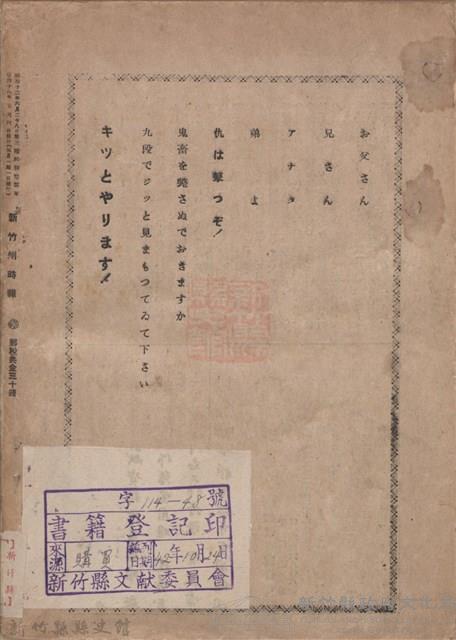 お父さん
兄さん
アナタ
弟よ
仇は撃つぞ！
鬼畜を斃さぬでおきますか
九段でジッと見まもつてゐて下さい
キッとやります！
新竹州時報
郵税共金三十錢
字 114-48 號
書籍登記印
來源 購買
42年10月24日
新竹縣文献委員會
新竹縣縣史館